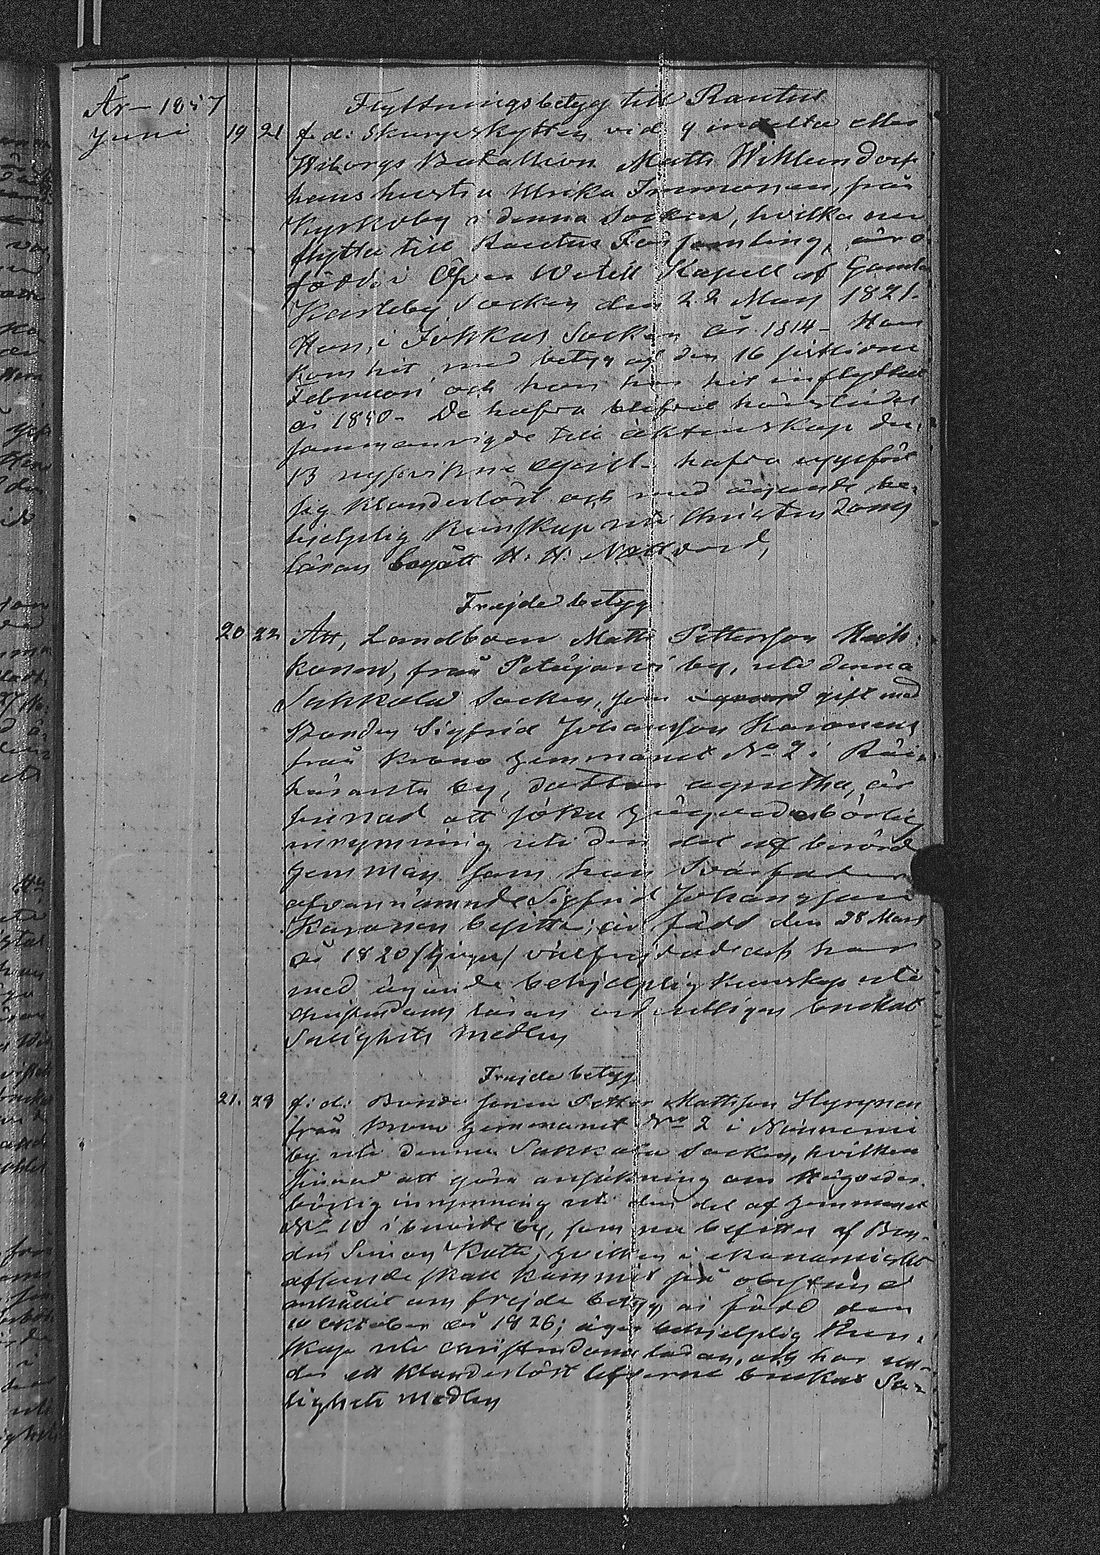 År 1857 Flyttningsbetyg till Rautus
Juni 19 21 f. d: Skarpskytten vid 9 indelta eller
Wiborgs Bataillion Matts Wiklund och
hans hustru Ulrika Immonen, från
Kyrkoby i denna Socken, hvilka nu
flytta till Rautus Församling, äro
födde i Öfver Wetill Kapell af Gamla
Karleby Socken den 22 Maij 1821.
Hon, i Jokkas Socken år 1814 - Han
kom hit med betyg af den 16 sistlidne
Februari och hon har hit inflyttat
år 1840 - De hafva blifvit härstädes
sammanvigde till äktenskap den
13 hafva uppfört
sig klanderlöst och med ägande be-
hjelplig Kunskap uti Christendoms
läran begått H. H. Nattvard,
Frejdebetyg
20 22 Att, Landboen Matts Pettersson
konen, från Petäjärvi by, uti denna
Sakkola Socken, som gift med
Bonden Sigfrid Johansson Karonens
från Krono hemmanet No 2 i
by, dotter Agnetha, är
sinnad att söka Högvederbörlig
inrymning uti den del af berörde
hemman som hans Svärfader
ofvannämnde Sigfrid Johansson
Karonen besitter, är född den 28 Mars
år 1820 välfrejdad och har
med ägande behjelplig Kunskap uti
christendoms läran brukat
Salighets medlen
Frejdebetyg
21. 23 f: d: Bonde sonen Petter Mattsson Hyrynen
från Krono hemmanet No 2 i
by uti denna Sakkola Socken, hvilken
sinnad att göra ansökning om Högveder-
börlig inrymning uti den del af hemmanet
No 10 i berörde by, som nu besittes af Bon-
den Simon hvilken i ekonomiskt
afseende skall kommit på obestånd
anhållit om frejde betyg är född den
10 Oktober år 1826; äger behjelplig Kun-
skap uti christendoms läran, och har un-
der ett klanderlöst lefverne brukat Sa-
lighets Medlen